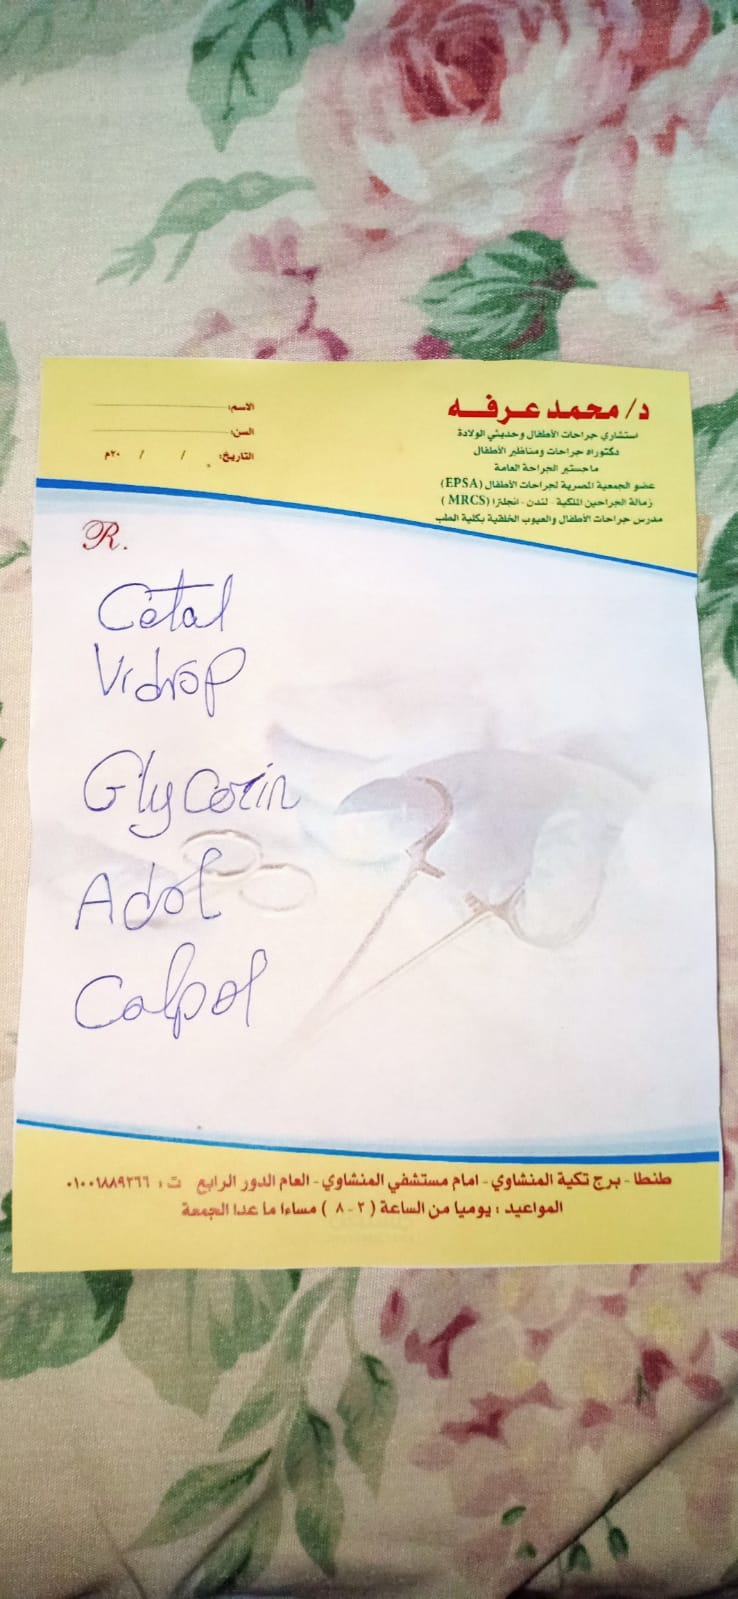 د/ محمد عرفه
استشاري جراحات الأطفال وحديثي الولادة
دكتوراه جراحات ومناظير الأطفال
ماجستير الجراحة العامة
عضو الجمعية المصرية لجراحات الأطفال (EPSA)
زمالة الجراحين الملكية - لندن - انجلترا (MRCS)
مدرس جراحات الأطفال والعيوب الخلقية بكلية الطب
الاسم:
السن:
التاريخ: / / ٢٠م
R.
Cetal
Vidrop
Glycerin
Adol
Calpol
طنطا - برج تكية المنشاوي - امام مستشفي المنشاوي - العام الدور الرابع ت: ٠١٠٠٦٨٨٩٢٦٦
المواعيد : يوميا من الساعة ( ٣ - ٨ ) مساءا ما عدا الجمعة